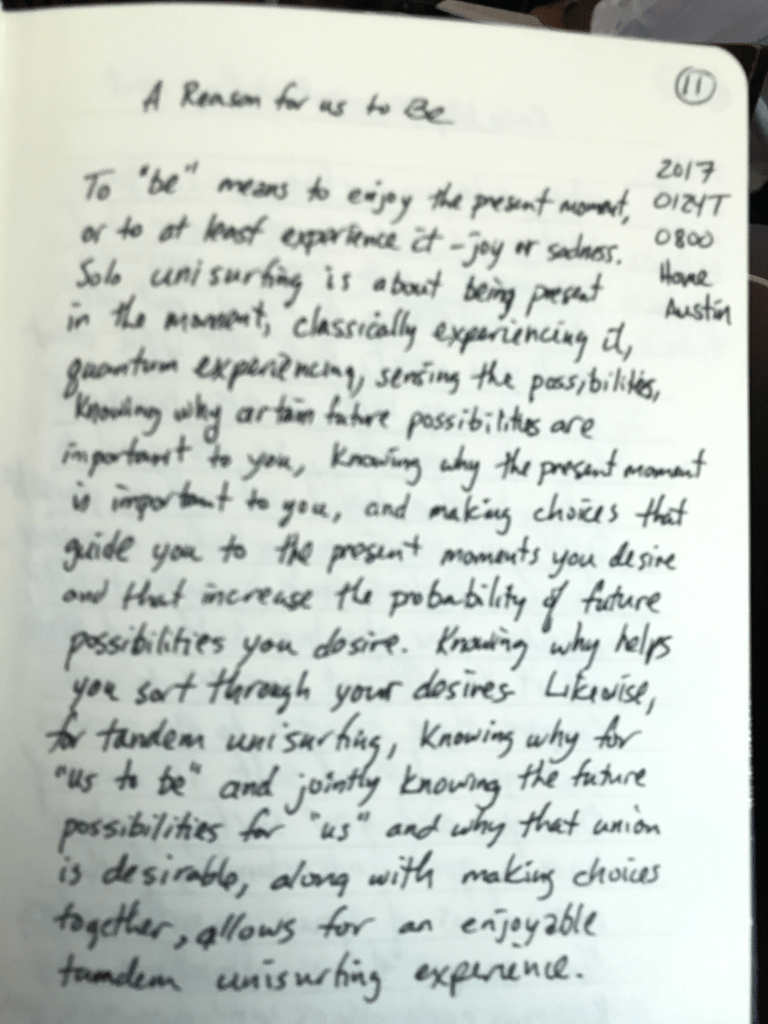 11
A Reason for us to Be
2017
0124T
0800
Home
Austin
To "be" means to enjoy the present moment,
or to at least experience it - joy or sadness.
Solo unisurfing is about being present
in the moment, classically experiencing it,
quantum experiencing, sensing the possibilities,
knowing why certain future possibilities are
important to you, knowing why the present moment
is important to you, and making choices that
guide you to the present moments you desire
and that increase the probability of future
possibilities you desire. Knowing why helps
you sort through your desires. Likewise,
for tandem unisurfing, knowing why for
"us to be" and jointly knowing the future
possibilities for "us" and why that union
is desirable, along with making choices
together, allows for an enjoyable
tamdem unisurfing experience.